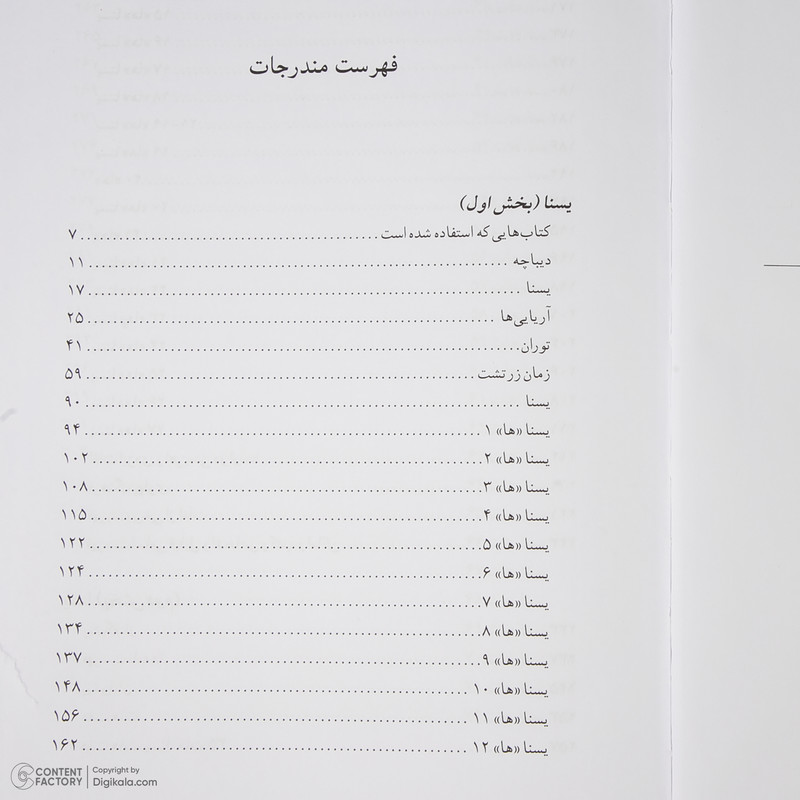 فهرست مندرجات
یسنا (بخش اول)
کتاب‌هایی که استفاده شده است ........ ۷
دیباچه ........ ۱۱
یسنا ........ ۱۷
آریایی‌ها ........ ۲۵
توران ........ ۴۱
زمان زرتشت ........ ۵۹
یسنا ........ ۹۰
یسنا «ها» ۱ ........ ۹۴
یسنا «ها» ۲ ........ ۱۰۲
یسنا «ها» ۳ ........ ۱۰۸
یسنا «ها» ۴ ........ ۱۱۵
یسنا «ها» ۵ ........ ۱۲۲
یسنا «ها» ۶ ........ ۱۲۴
یسنا «ها» ۷ ........ ۱۲۸
یسنا «ها» ۸ ........ ۱۳۴
یسنا «ها» ۹ ........ ۱۳۷
یسنا «ها» ۱۰ ........ ۱۴۸
یسنا «ها» ۱۱ ........ ۱۵۶
یسنا «ها» ۱۲ ........ ۱۶۲
CONTENT FACTORY
Copyright by
Digikala.com